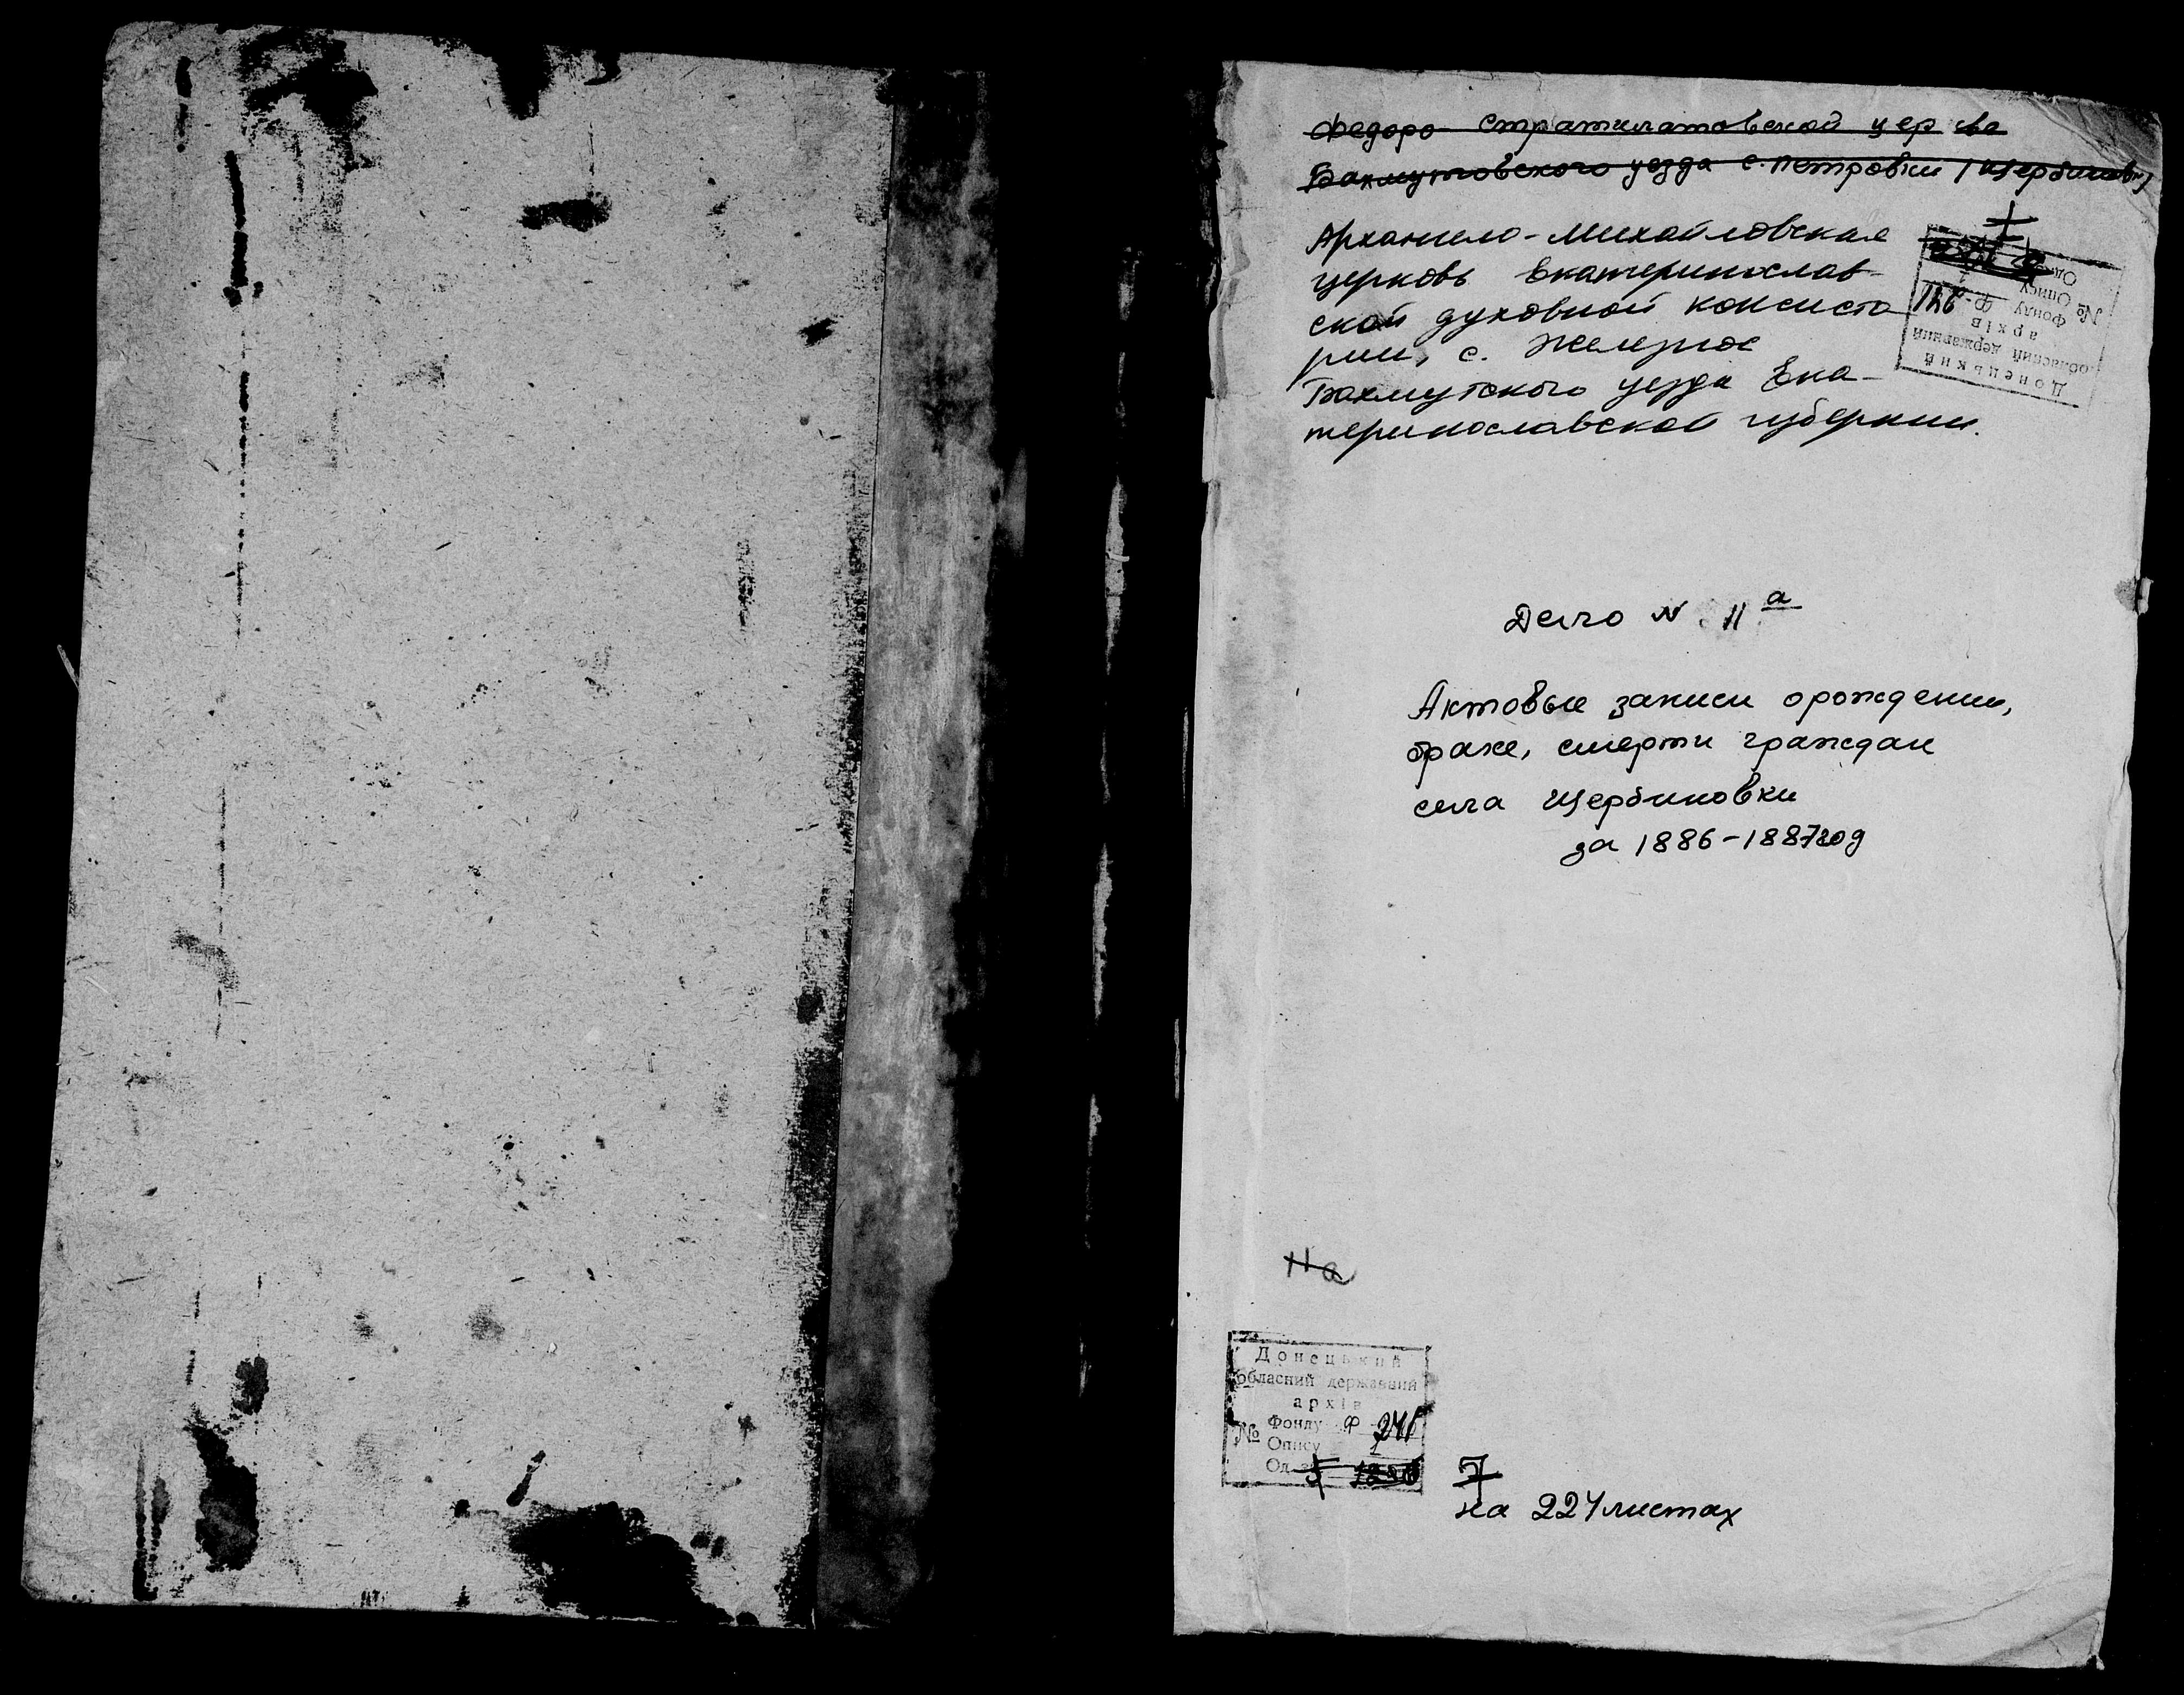 Федоро Стратилатовской цер ква
Бахмутовского уезда с. Петровки /Щербиновк/
Архангело-Михайловская
церковь Екатеринослав-
ской духовной консисто
рии, с. Железное
Бахмутского уезда Ека-
теринославской губернии.
Донецький
обласний державний
архів
№ Фонду Ф-241
Опису
Од.
Дело N 11 а
Актовые записи о рождении,
браке, смерти граждан
села Щербиновки
за 1886-1887 год
11а
Донецький
обласний державний
архів
№ Фонду Ф 241
Опису 1
Од. з
7
на 224 листах